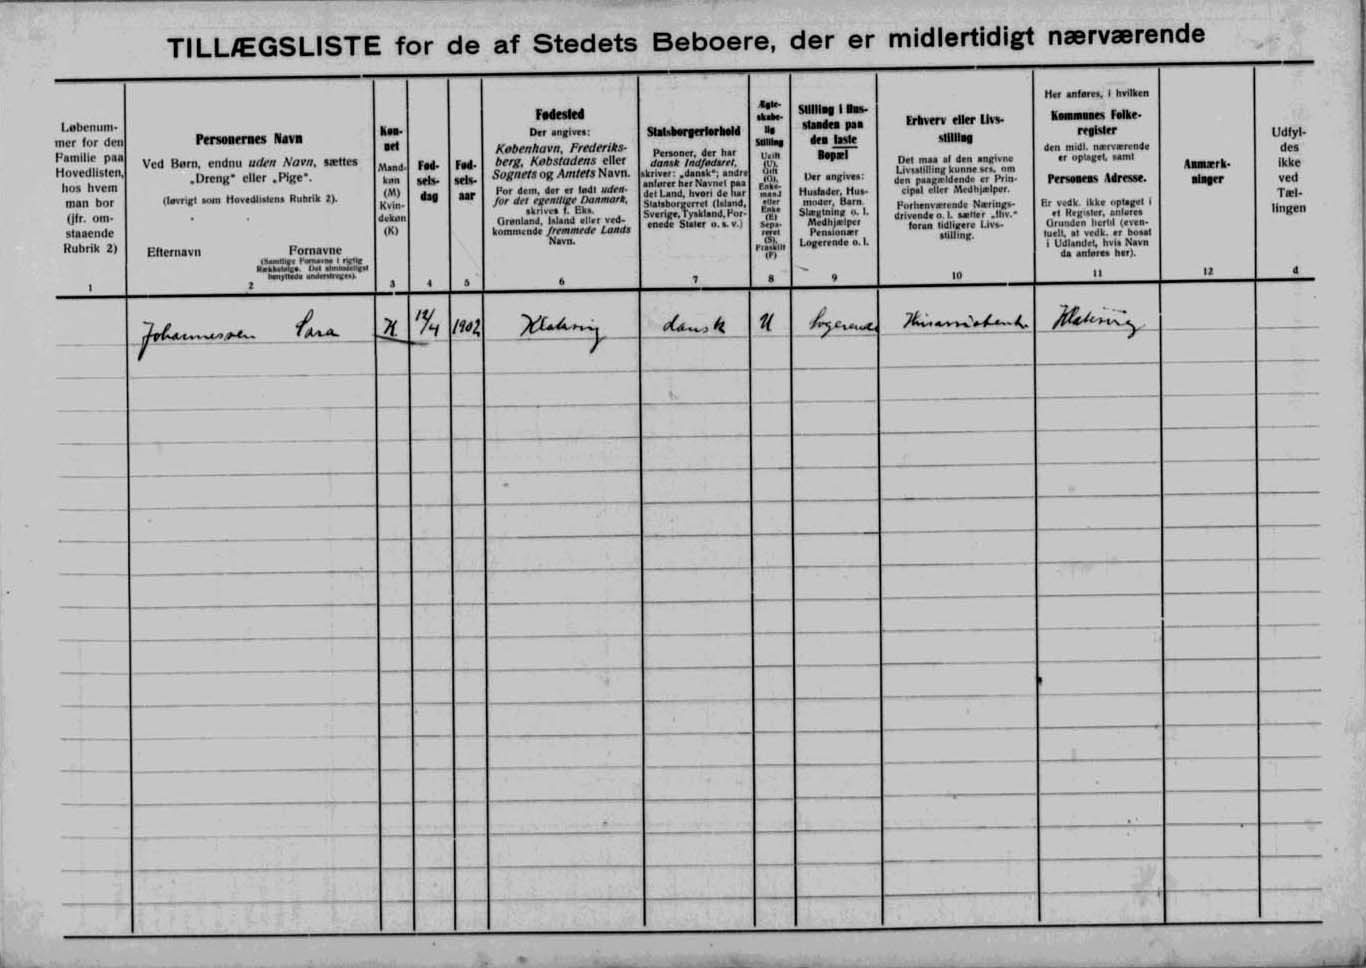 TILLÆGSLISTE for de af Stedets Beboere, der er midlertidigt nærværende
Løbenum-
mer for den
Familie paa
Hovedlisten,
hos hvem
man bor
(jfr. om-
staaende
Rubrik 2)
1
Personernes Navn
Ved Børn, endnu uden Navn, sættes
„Dreng“ eller „Pige“.
(Iøvrigt som Hovedlistens Rubrik 2).
Efternavn Fornavne
(Samtlige Fornavne i rigtig
Rækkefølge. Det almindeligst
benyttede understreges).
2
Køn-
net
Mand-
køn
(M)
Kvin-
dekøn
(K)
3
Fød-
sels-
dag
4
Fød-
sels-
aar
5
Fødested
Der angives:
København, Frederiks-
berg, Købstadens eller
Sognets og Amtets Navn.
For dem, der er født uden-
for det egentlige Danmark,
skrives f. Eks.
Grønland, Island eller ved-
kommende fremmede Lands
Navn.
6
Statsborgerforhold
Personer, der har
dansk Indfødsret,
skriver: „dansk“; andre
anfører her Navnet paa
det Land, hvori de har
Statsborgerret (Island,
Sverige, Tyskland, For-
enede Stater o. s. v.)
7
Ægte-
skabe-
lig
Stilling
Ugift
(U),
Gift
(G),
Enke-
mand
eller
Enke
(E)
Sepa-
reret
(S),
Fraskilt
(F)
8
Stilling i Hus-
standen paa
den faste
Bopæl
Der angives:
Husfader, Hus-
moder, Barn,
Slægtning o. l.
Medhjælper
Pensionær
Logerende o. l.
9
Erhverv eller Livs-
stilling
Det maa af den angivne
Livsstilling kunne ses, om
den paagældende er Prin-
cipal eller Medhjælper.
Forhenværende Nærings-
drivende o. l. sætter „fhv.“
foran tidligere Livs-
stilling.
10
Her anføres, i hvilken
Kommunes Folke-
register
den midl. nærværende
er optaget, samt
Personens Adresse.
Er vedk. ikke optaget i
et Register, anføres
Grunden hertil (even-
tuelt, at vedk. er bosat
i Udlandet, hvis Navn
da anføres her).
11
Anmærk-
ninger
12
Udfyl-
des
ikke
ved
Tæl-
lingen
d
Johannessen Sara K 12/4 1902 Klaksvig dansk U Logerende Klaksvig